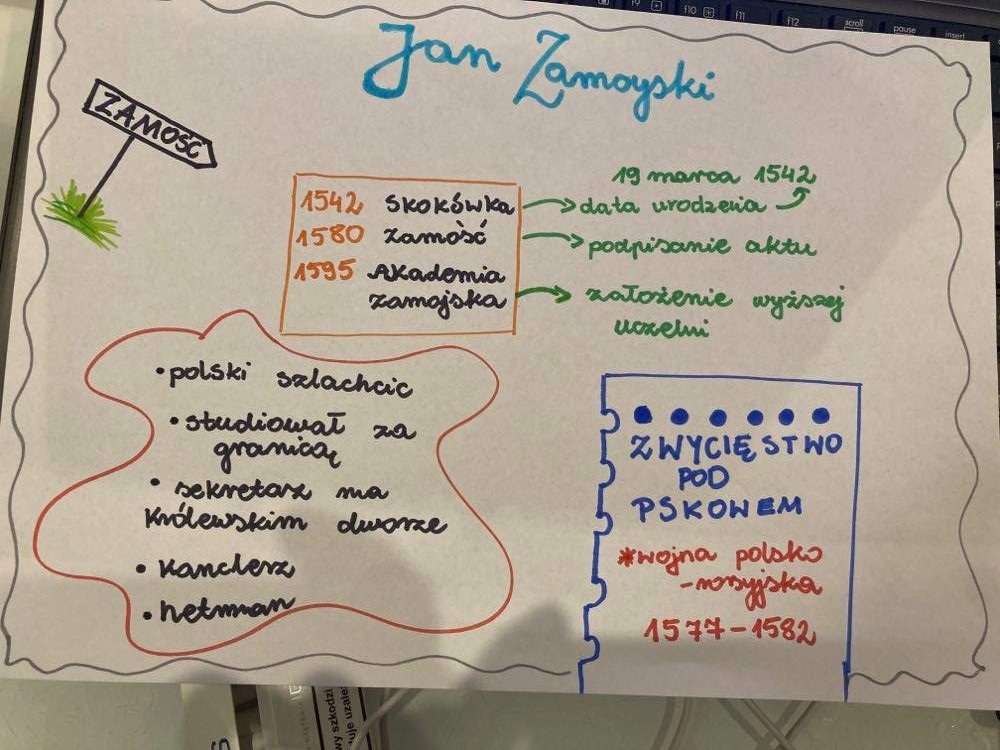 f9
f10
f11
f12
scroll
pause
insert
Jan Zamoyski
ZAMOŚĆ
1542 Skokówka
1580 Zamość
1595 Akademia
zamojska
19 marca 1542
data urodzenia
podpisanie aktu
założenie wyższej
uczelni
• polski szlachcic
• studiował za
granicą
• sekretarz na
królewskim dworze
• kanclerz
• hetman
ZWYCIĘSTWO
POD
PSKOWEM
*wojna polsko
-rosyjska
1577-1582
wy szkodzi
uje uzale